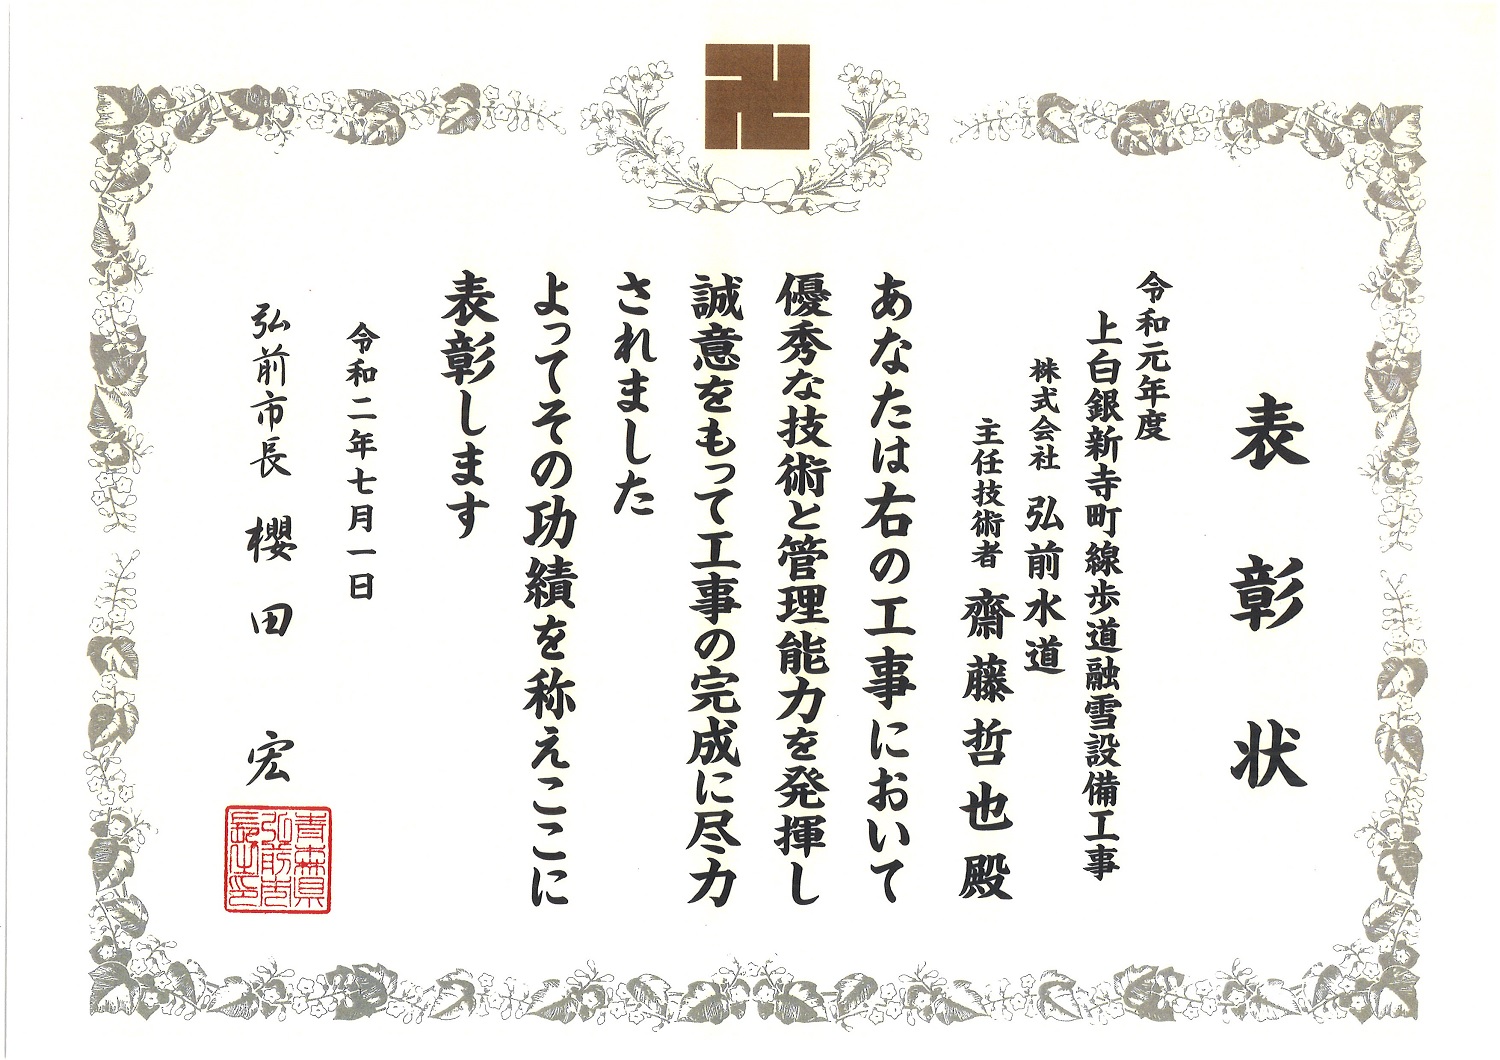 表彰状
令和元年度
上白銀新寺町線歩道融雪設備工事
株式会社 弘前水道
主任技術者 齋藤哲也殿
あなたは右の工事において
優秀な技術と管理能力を発揮し
誠意をもって工事の完成に尽力
されました
よってその功績を称えここに
表彰します
令和二年七月一日
弘前市長 櫻田 宏
青森県
弘前市
長之印